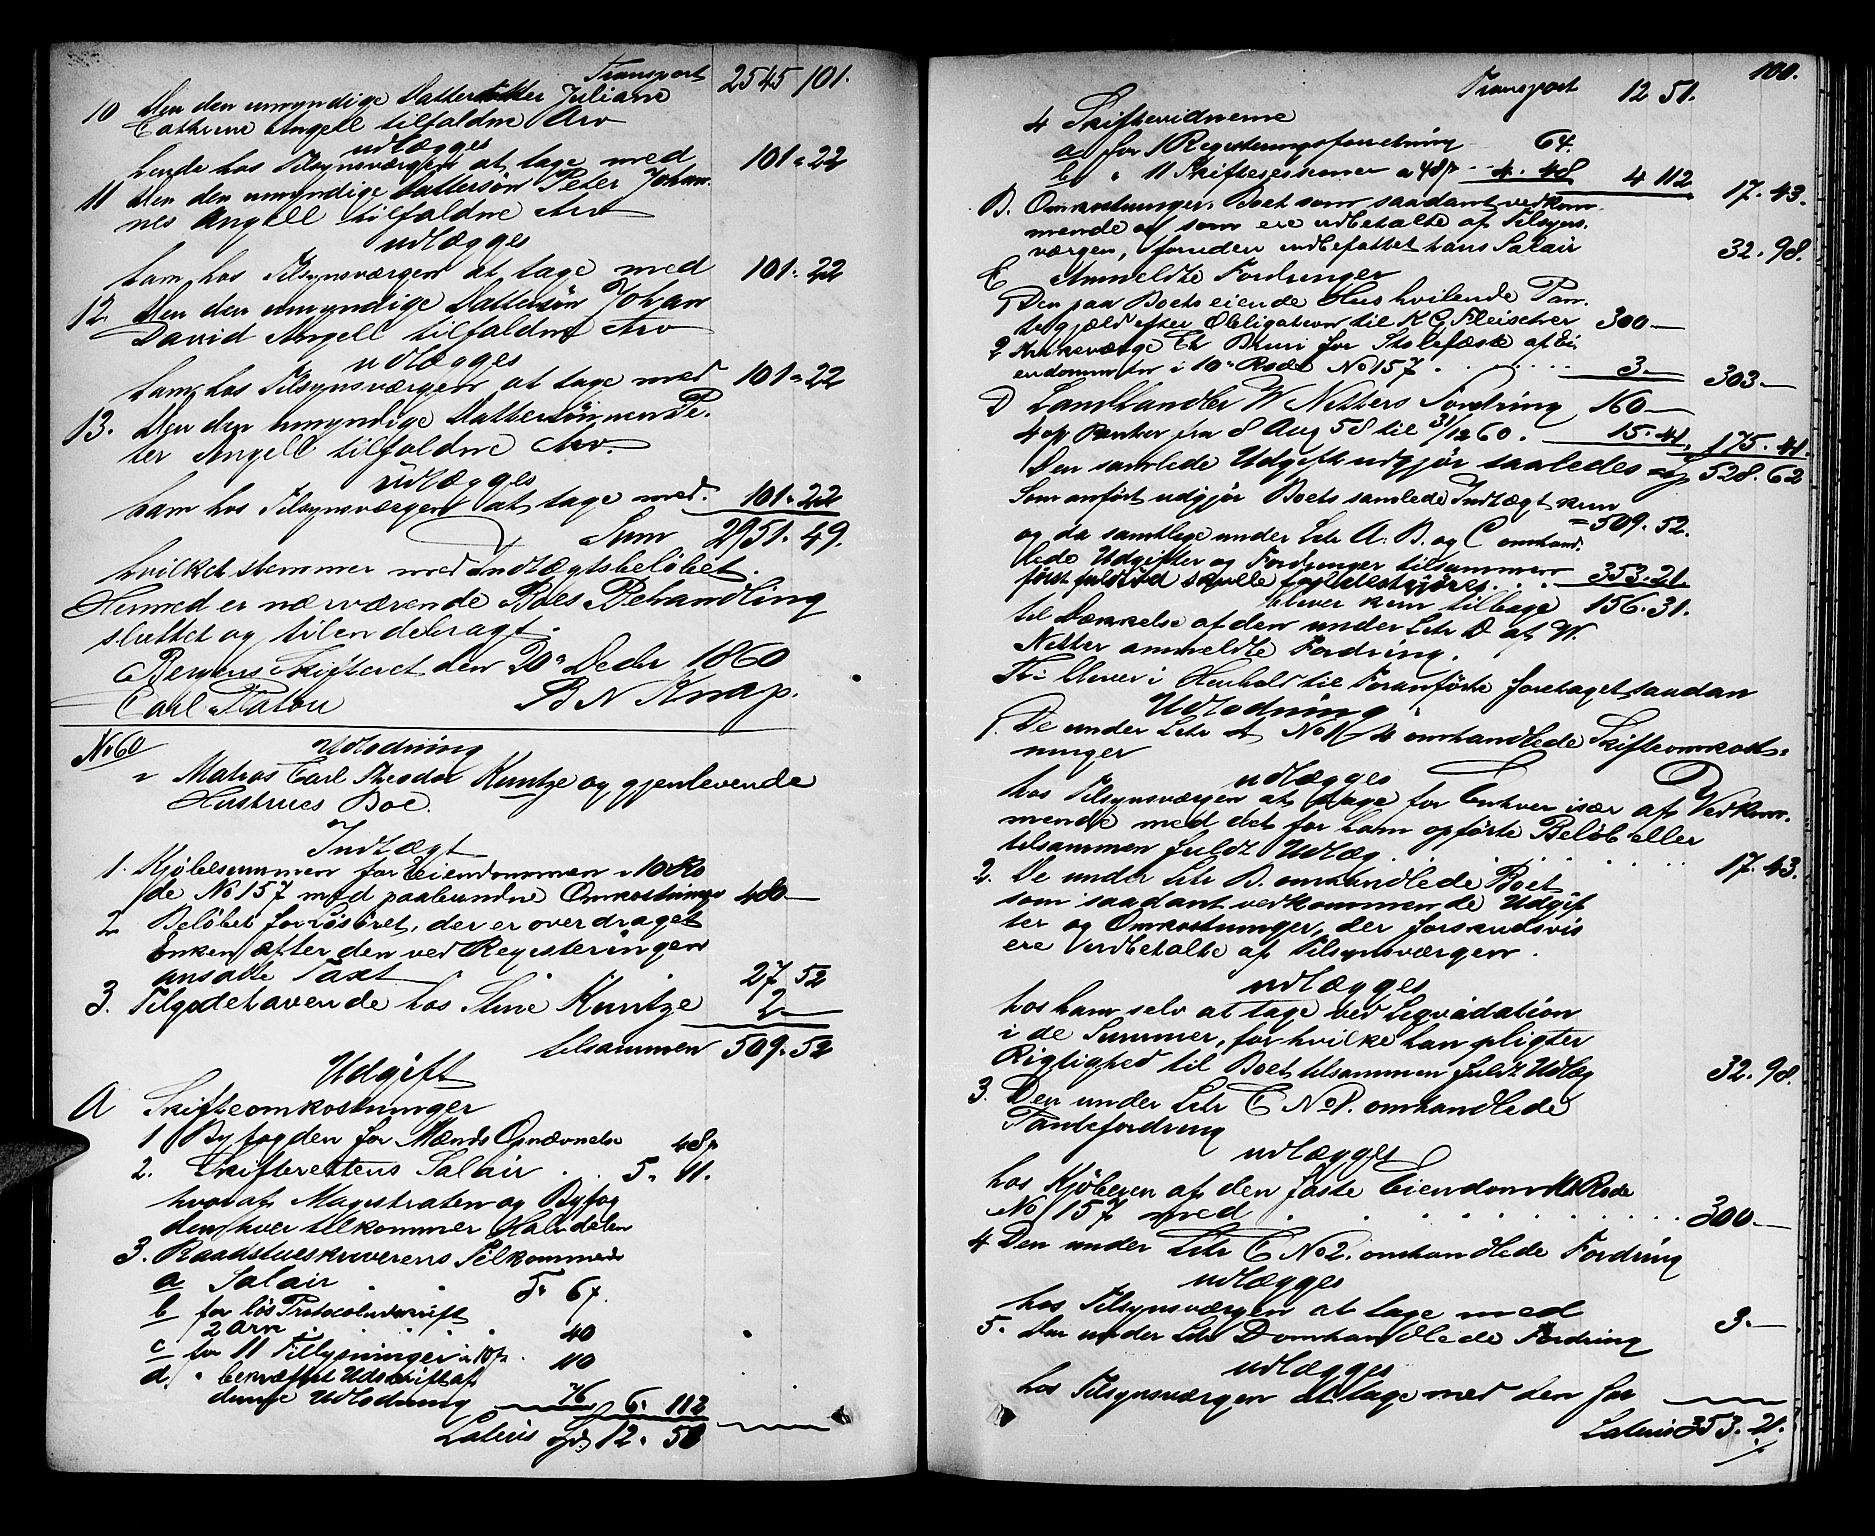 Transport 2545 101.
10 Den den umyndige Datterdatter Juliane
Cathrine Angell tilfaldne Arv
udlægges
hende hos Tilsynsværgen at tage med 101 " 22
11 Den den umyndige Dattersøn Peter Johan-
nes Angell tilfaldne Arv
udlægges
ham hos Tilsynsværgen at tage med 101 " 22
12. Den den umyndige Dattersøn Johan
David Angell tilfaldne Arv
udlægges
ham hos Tilsynsværgen at tage med 101 " 22
13. Den den umyndige Dattersøn Pe-
ter Angell tilfaldne Arv.
udlægges
ham hos Tilsynsværgen at tage med. 101 " 22
Sum 2951. 49.
hvilket stemmer med Indtægtsbeløbet.
Hermed er nærværende Boes Behandling
sluttet og tilendebragt.
Bergens Skifteret den 20de Decbr 1860
Carl Platou B N Knap.
No 60 Udlodning
i Matros Carl Theodor Kuntze og gjenlevende
Hustrues Boe.
Indtægt
1. Kjøbesummen for Eiendommen i 10 Ro
de No 157 med paabundne Omkostninger 480 —
2 Beløbet for Løsøret, der er overdraget
Enken efter den ved Registeringen
ansatte Taxt 27. 52
3. Tilgodehavende hos Stine Kuntze 2 —
tilsammen 509. 52
Udgift
A Skifteomkostninger
1 Byfogden for Mænds Opnævnelse 48 s
2. Skifterettens Salair . . 5. 11.
hvoraf Magistraten og Byfog
den hver tilkommer Halvdelen
3. Raadstueskriverens Tilkommende
a Salair 5. 67.
b for løs Protocoludskrift
2 Ark 40
c for 11 Tillysninger a 10 s 110
d. " bekræftet Udskrift af
denne Udlodning 76 6. 112
Lateris spd 12. 51
100.
Transport 12 51.
4 Skiftevidnerne
a for 1 Registeringsforretning 64.
b " 11 Skiftesessioner a 48 s 4. 48 4 112 17. 43.
B. Omkostninger, Boet som saadant vedkom-
mende og som ere udbetalte af Tilsyns-
værgen, foruden indbefattet hans Salair 32. 98.
C Anmeldte Fordringer
1 Den paa Boets eiende Huus hvilende Pan-
tegjæld efter Obligation til K G Fleischer 300 —
2 Kirkeværge Chr Bruun for Stolefæste af Ei-
endommen i 10de Rode No 157 . . . . 3 — 303 —
D Landhandler W Netters Fordring 160 —
4 op Renter fra 8 Aug 58 til 31/12 60 . 15. 41. 175. 41.
Den samlede Udgift udgjør saaledes spd 528. 62
Som anført udgjør Boets samlede Indtægt kun
= 509. 52.
og da samtlige under Litr A. B. og C omhand-
lede Udgifter og Fordringer tilsammen
først fuldtud skulle fyldestgjøres . . . 353. 21.
bliver kun tilbage 156. 31.
til Dækkelse af den under Litr D af W.
Netter anmeldte Fordring.
Thi bliver i Henhold til Foranførte foretaget saadan
Udlodning
1. De under Litr A No 1/4 omhandlede Skifteomkost-
ninger
udlægges
hos Tilsynsværgen at tage for Enhver især af Vedkom-
mende med det for ham opførte Beløb eller
tilsammen fuldt Udlæg . . . . 17. 43.
2. De under Litr B. omhandlede Boet
som saadant vedkommende Udgif
ter og Omkostninger, der forskudsvis
ere udbetalte af Tilsynsværgen.
udlægges
hos ham selv at tage ved Liqvidation
i de Summer, for hvilke han pligter
Rigtighed til Boet tilsammen fuldt Udlæg 32. 98.
3. Den under Litr C No 1. omhandlede
Pantefordring
udlægges
hos Kjøberen af den faste Eiendom 10 Rode
No 157 med . . . . . . . 300 —
4 Den under Litr C No 2. omhandlede Fordring
udlægges
hos Tilsynsværgen at tage med 3. —
5. Den under Litr D omhandlede Fordring
udlægges
hos Tilsynsværgen at tage med den for
Lateris 353. 21.